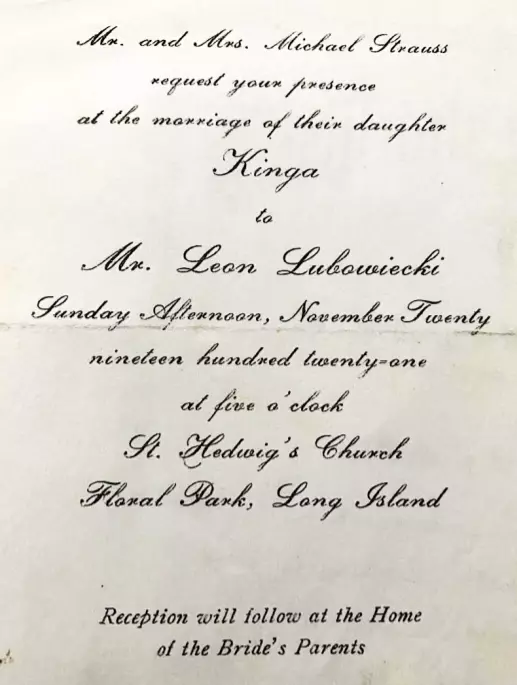 Mr. and Mrs. Michael Strauss
request your presence
at the marriage of their daughter
Kinga
to
Mr. Leon Lubowiecki
Sunday Afternoon, November Twenty
nineteen hundred twenty-one
at five o'clock
St. Hedwig's Church
Floral Park, Long Island
Reception will follow at the Home
of the Bride's Parents